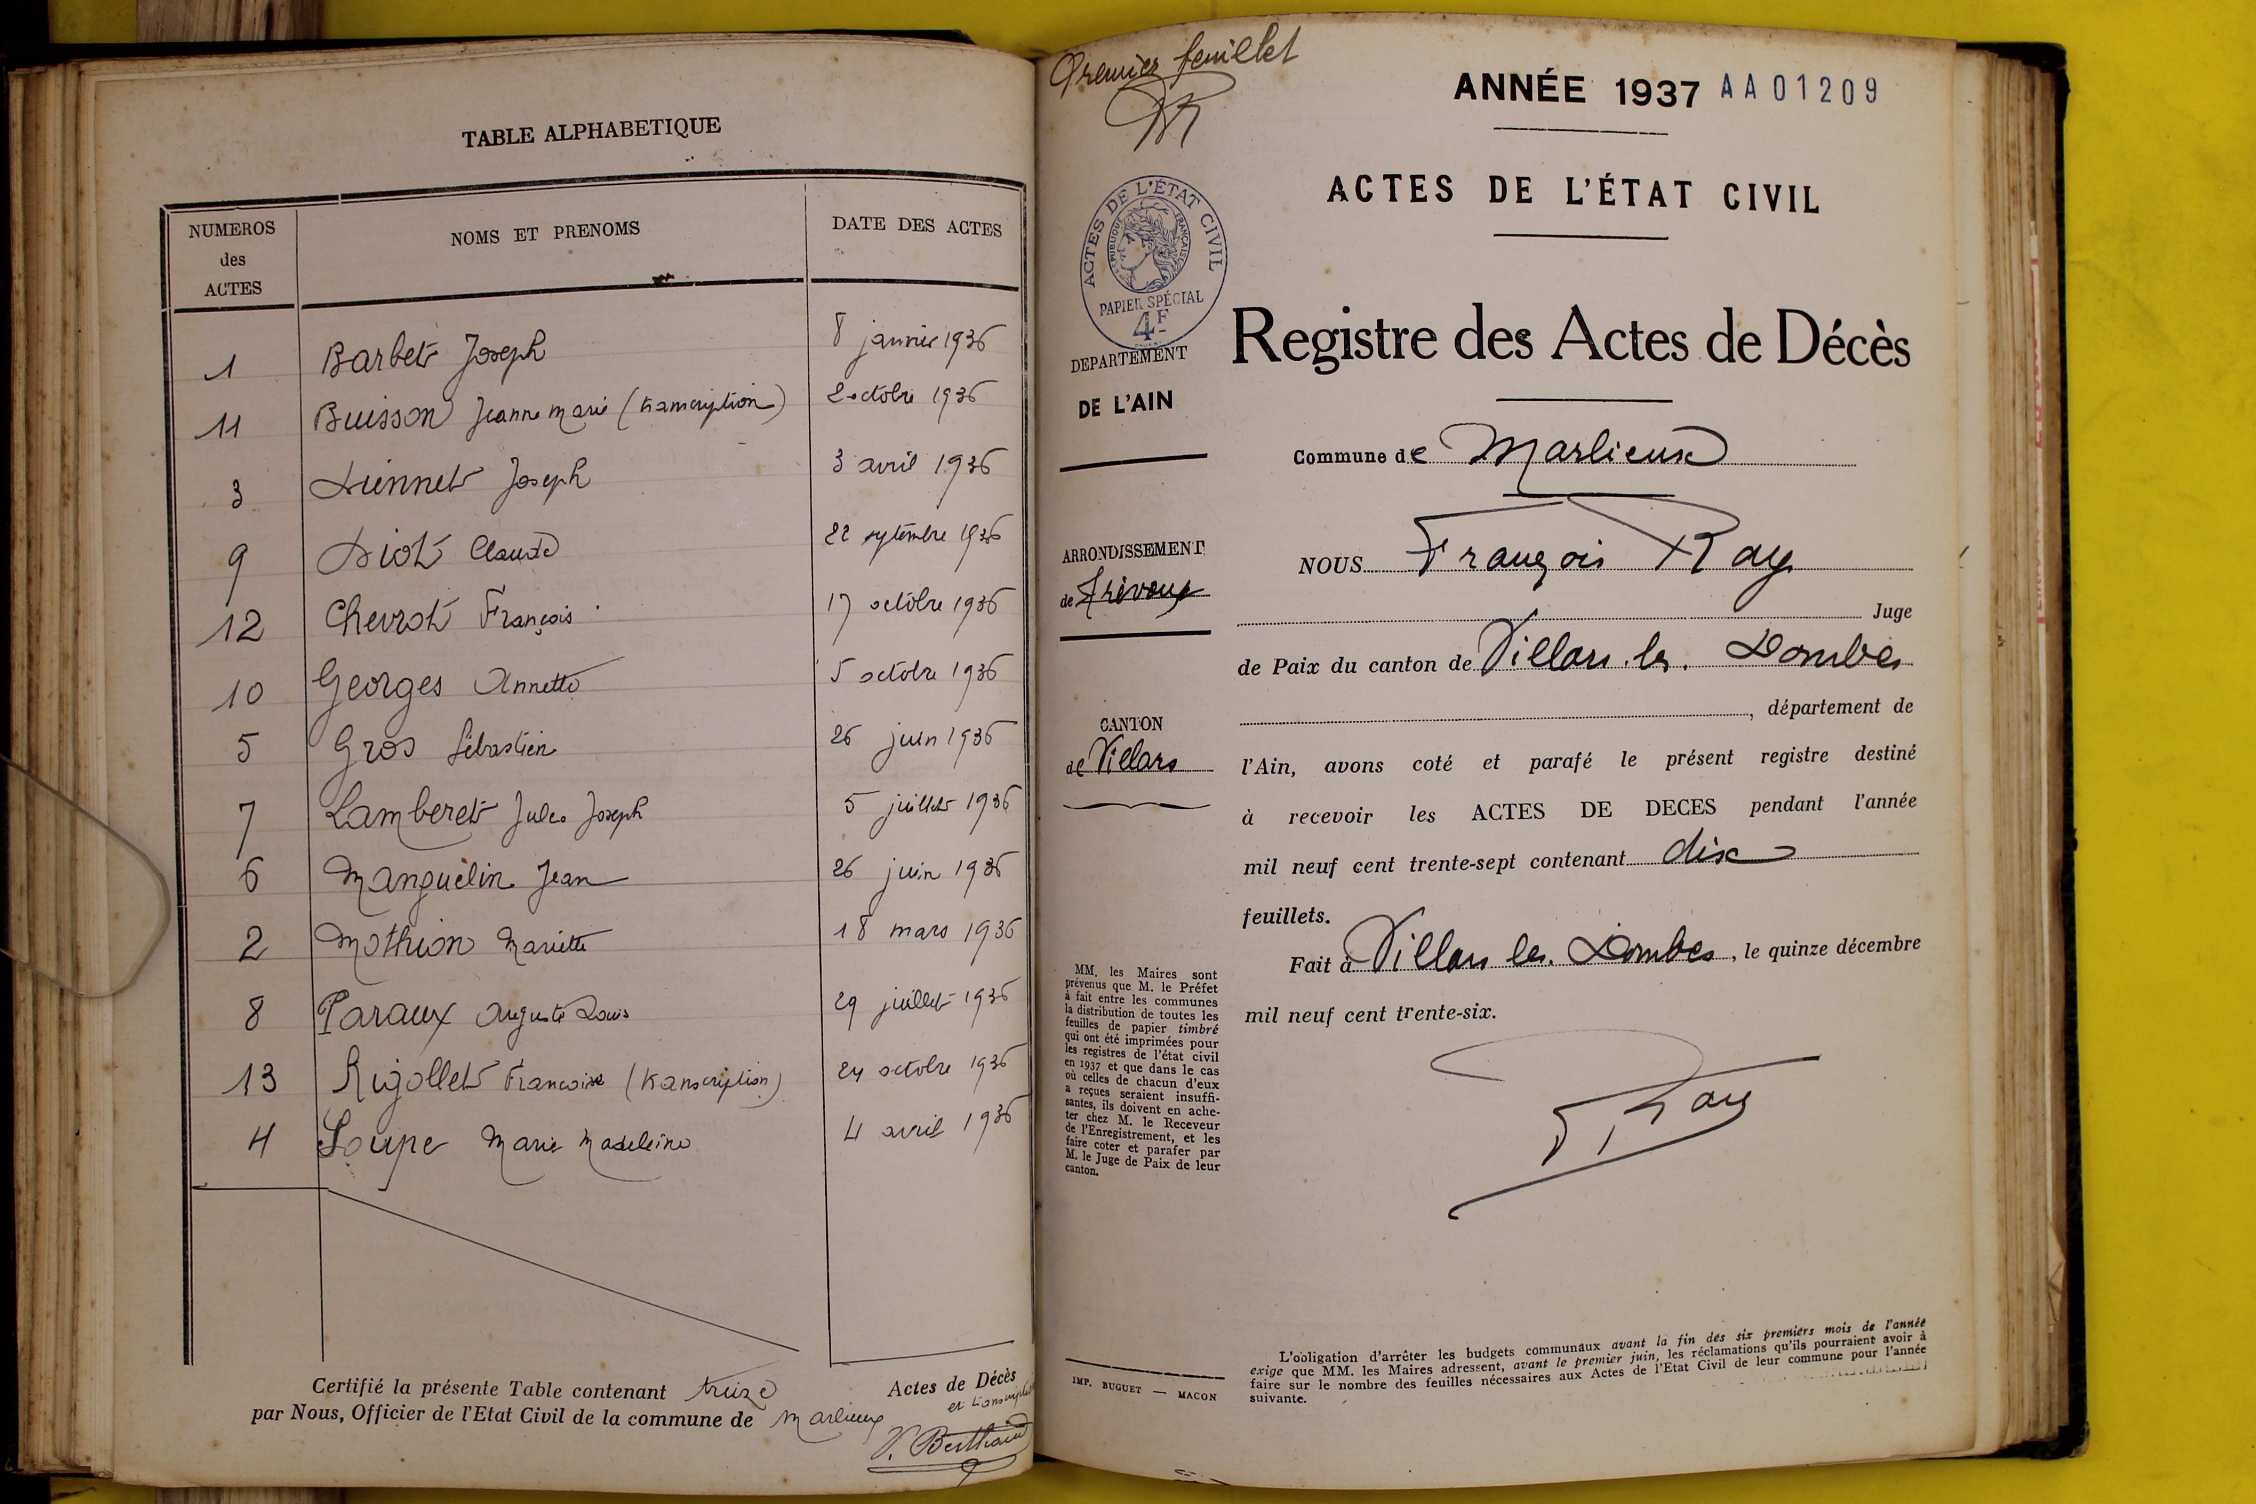 TABLE ALPHABETIQUE
NUMEROS
des
ACTES
NOMS ET PRENOMS
DATE DES ACTES
1 Barbet Joseph 8 janvier 1936
11 Buisson Jeanne Marie (transcription) 2 octobre 1936
3 Diennet Joseph 3 avril 1936
9 Diot Claude 22 septembre 1936
12 Chevrot François 17 octobre 1936
10 Georges Annette 5 octobre 1936
5 Gros Sébastien 26 juin 1936
7 Lamberet Jules Joseph 5 juillet 1936
6 Manguelin Jean 26 juin 1936
2 Mothion Mariette 18 mars 1936
8 Paraux Auguste Louis 29 juillet 1936
13 Rigollet Francoise (transcription) 24 octobre 1936
4 Loupe Marie Madeleine 4 avril 1936
Certifié la présente Table contenant treize Actes de Décès
et transcriptions
par Nous, Officier de l'Etat Civil de la commune de Marlieux
V. Berthaud
Premier feuillet
FR
ANNÉE 1937 AA01209
ACTES DE L'ÉTAT CIVIL
ACTES DE L'ÉTAT CIVIL
REPUBLIQUE FRANÇAISE
PAPIER SPÉCIAL
4F
Registre des Actes de Décès
DEPARTEMENT
DE L'AIN
Commune de Marlieux
ARRONDISSEMENT
de Trévoux
NOUS François Ray
Juge
de Paix du canton de Villars les Dombes
, département de
CANTON
de Villars
l'Ain, avons coté et parafé le présent registre destiné
à recevoir les ACTES DE DECES pendant l'année
mil neuf cent trente-sept contenant dix
feuillets.
Fait à Villars les Dombes, le quinze décembre
mil neuf cent trente-six.
F Ray
MM. les Maires sont
prévenus que M. le Préfet
à fait entre les communes
la distribution de toutes les
feuilles de papier timbré
qui ont été imprimées pour
les registres de l'état civil
en 1937 et que dans le cas
où celles de chacun d'eux
a reçues seraient insuffi-
santes, ils doivent en ache-
ter chez M. le Receveur
de l'Enregistrement, et les
faire coter et parafer par
M. le Juge de Paix de leur
canton.
IMP. BUGUET — MACON
L'obligation d'arrêter les budgets communaux avant la fin des six premiers mois de l'année
exige que MM. les Maires adressent, avant le premier juin, les réclamations qu'ils pourraient avoir à
faire sur le nombre des feuilles nécessaires aux Actes de l'Etat Civil de leur commune pour l'année
suivante.